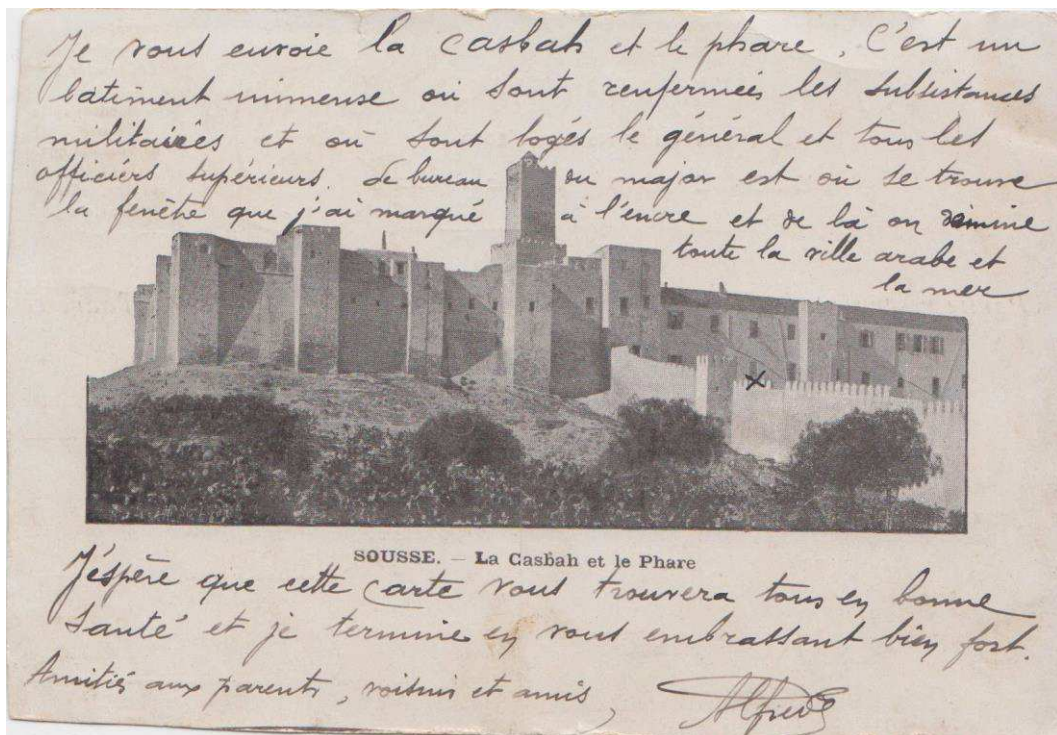 Je vous envoie la casbah et le phare. C'est un
bâtiment immense où sont renfermées les subsistances
militaires et où sont logés le général et tous les
officiers supérieurs. Le bureau du major est où se trouve
la fenêtre que j'ai marqué à l'encre et de là on domine
toute la ville arabe et
la mer.
X
SOUSSE. – La Casbah et le Phare
J'éspère que cette carte vous trouvera tous en bonne
santé et je termine en vous embrassant bien fort.
Amitiés aux parents, voisins et amis,
Alfred